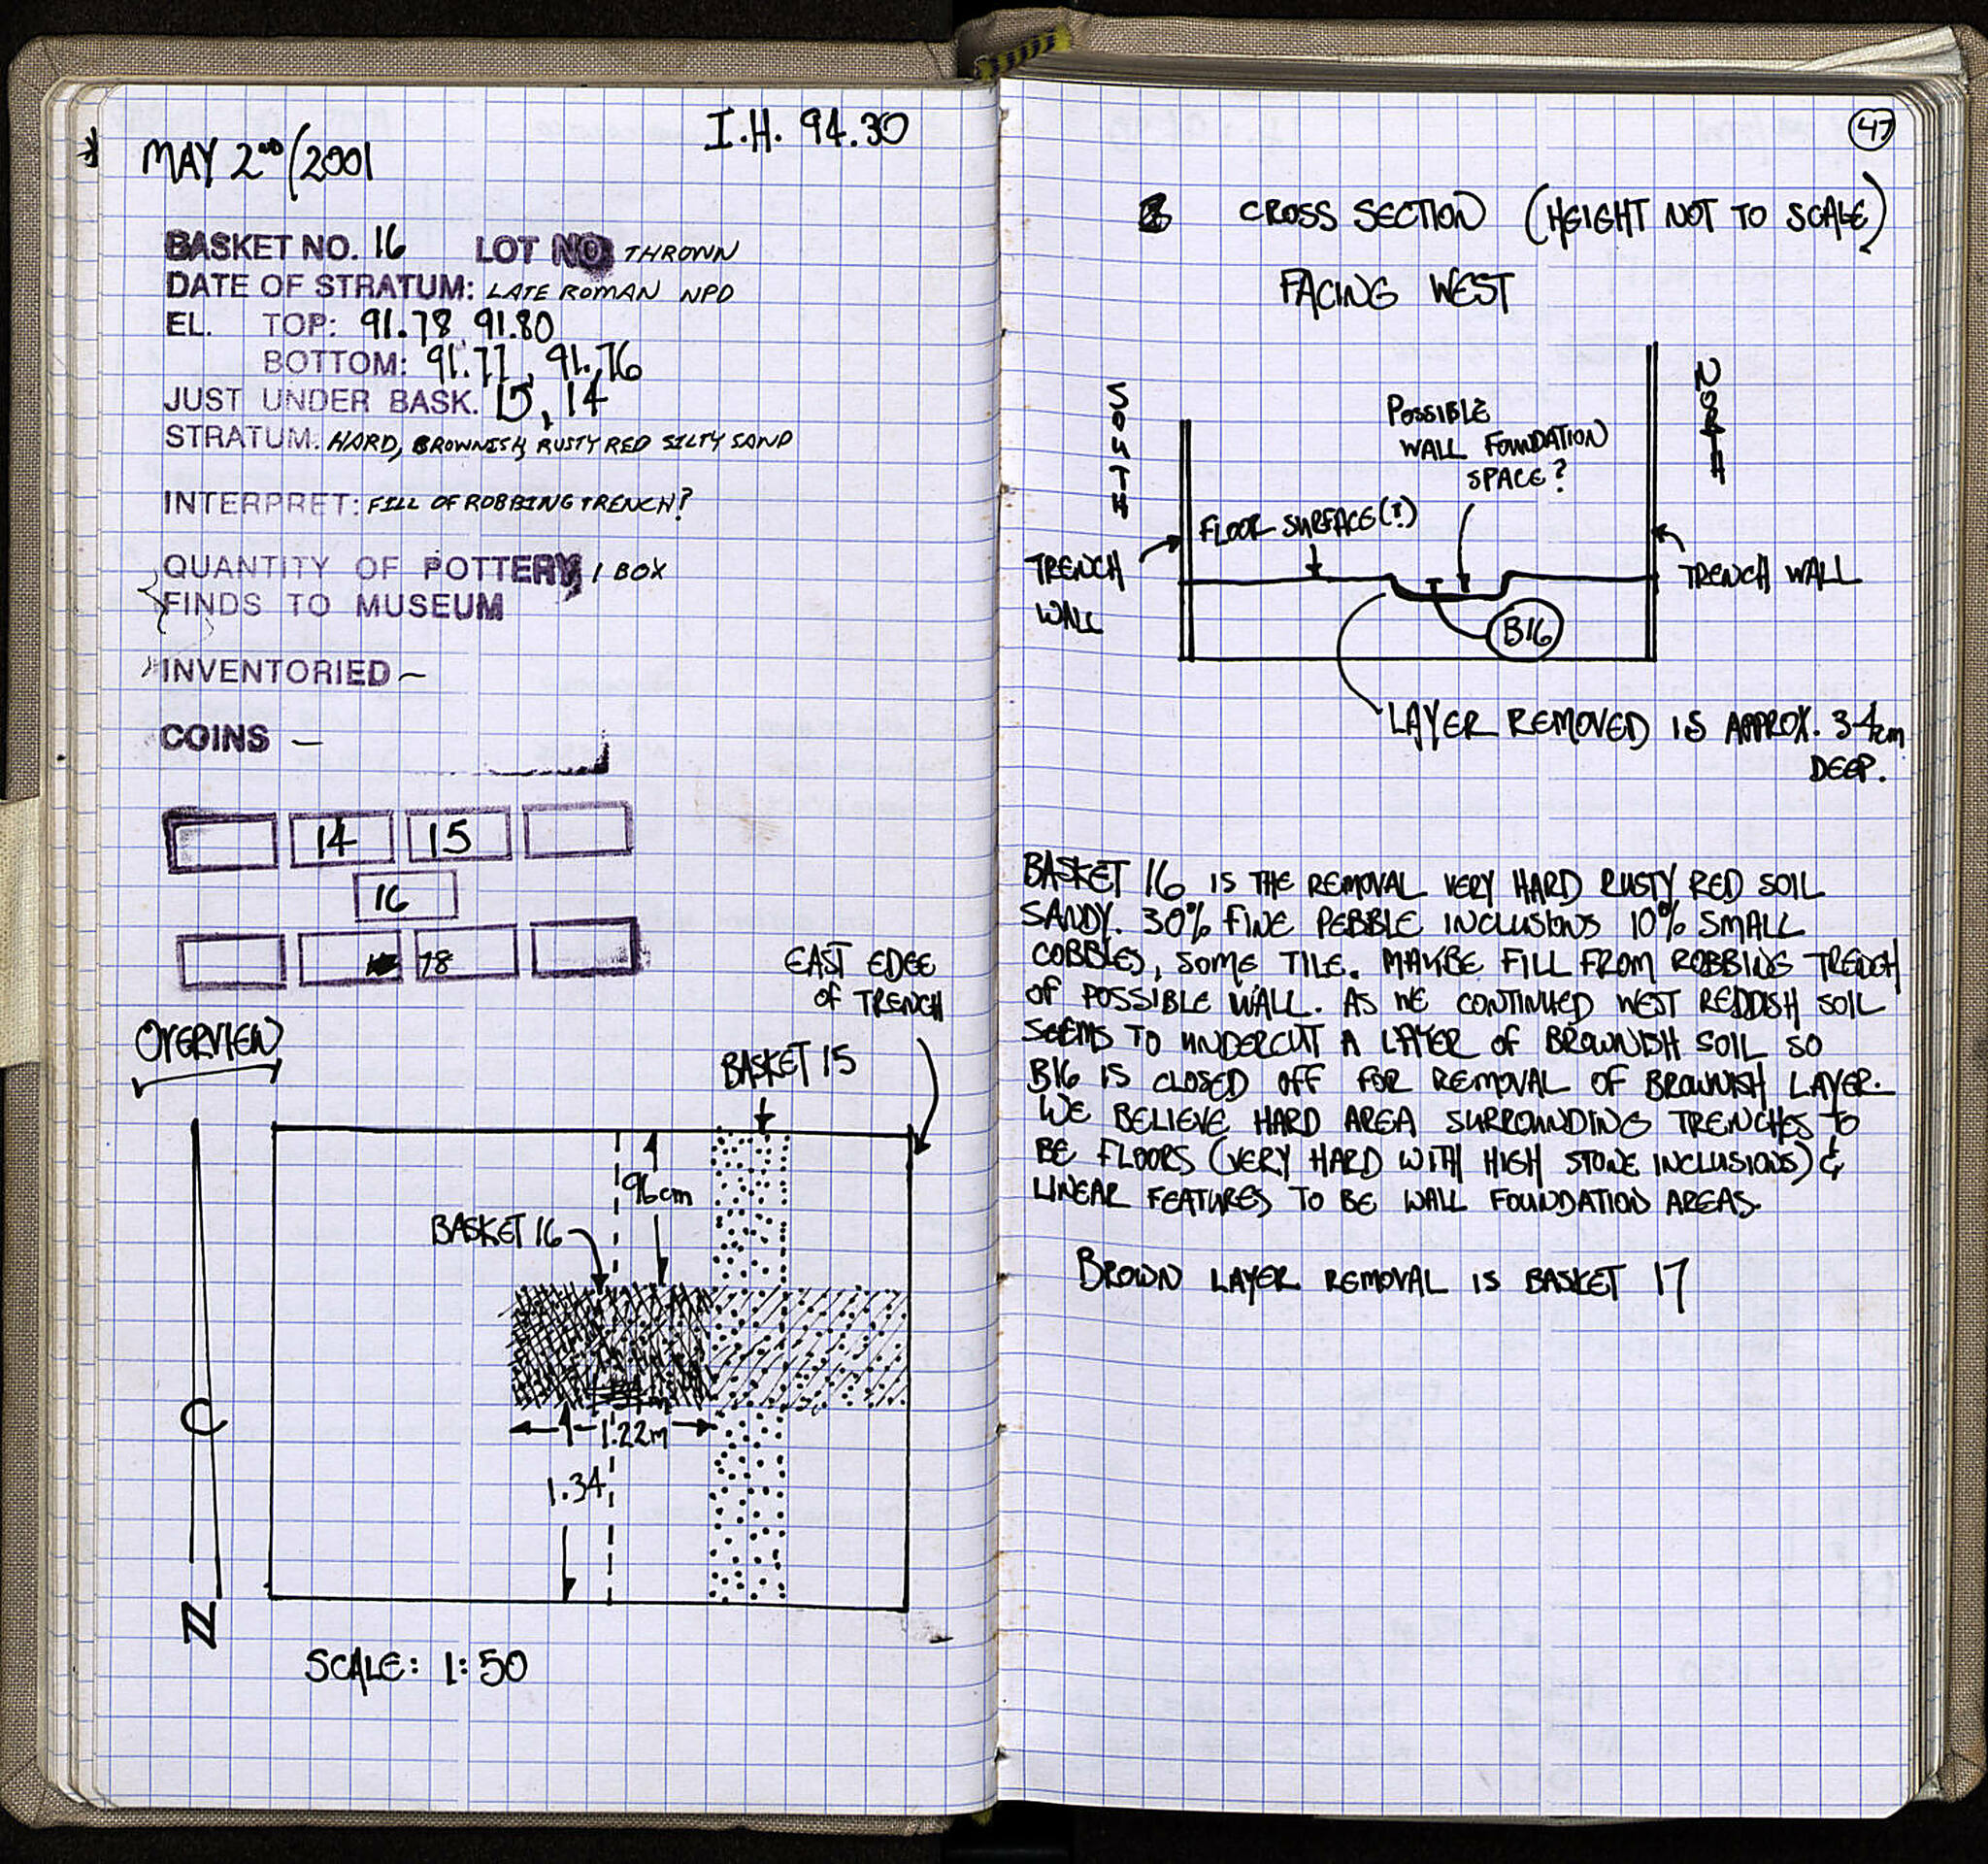 MAY 2ND/2001
I.H. 94.30
BASKET NO. 16 LOT NO THROWN
DATE OF STRATUM: LATE ROMAN NPD
EL. TOP: 91.78, 91.80
BOTTOM: 91.77, 91.76
JUST UNDER BASK. 15, 14
STRATUM: HARD, BROWNISH, RUSTY RED SILTY SAND
INTERPRET: FILL OF ROBBING TRENCH?
QUANTITY OF POTTERY 1 BOX
FINDS TO MUSEUM
INVENTORIED ~
COINS —
14 15
16
78
OVERVIEW
EAST EDGE
OF TRENCH
BASKET 15
96cm
BASKET 16
1.22m
1.34
N
SCALE: 1:50
47
CROSS SECTION (HEIGHT NOT TO SCALE)
FACING WEST
SOUTH
NORTH
POSSIBLE
WALL FOUNDATION
SPACE?
FLOOR SURFACE(?)
TRENCH
WALL
TRENCH WALL
B16
LAYER REMOVED IS APPROX. 3-4cm
DEEP.
BASKET 16 IS THE REMOVAL VERY HARD RUSTY RED SOIL
SANDY. 30% FINE PEBBLE INCLUSIONS 10% SMALL
COBBLES, SOME TILE. MAYBE FILL FROM ROBBING TRENCH
OF POSSIBLE WALL. AS WE CONTINUED WEST REDDISH SOIL
SEEMS TO UNDERCUT A LAYER OF BROWNISH SOIL SO
B16 IS CLOSED OFF FOR REMOVAL OF BROWNISH LAYER.
WE BELIEVE HARD AREA SURROUNDING TRENCHES TO
BE FLOORS (VERY HARD WITH HIGH STONE INCLUSIONS) &
LINEAR FEATURES TO BE WALL FOUNDATION AREAS.
BROWN LAYER REMOVAL IS BASKET 17